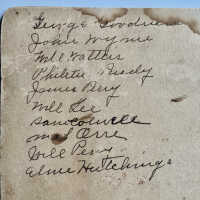 George Goodrich
John Wynne
Will Watters
Philetus Ready
James Berry
Will Lee
Sam Colwell
Med Orre
Will Perry
Elmer Hutchings